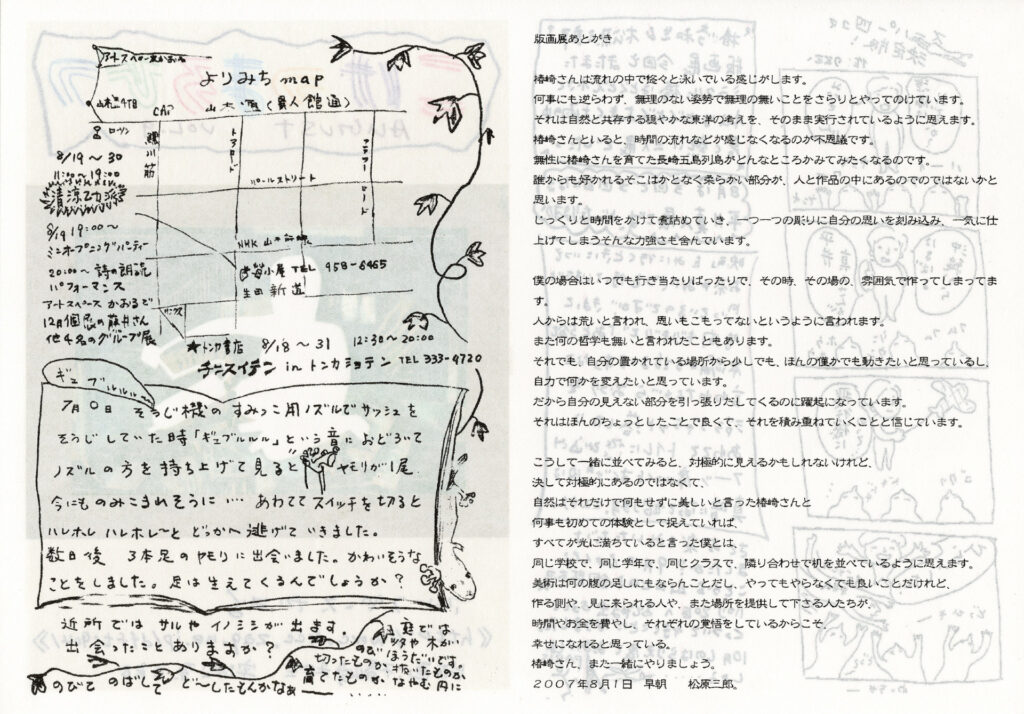 アートスペースかおる
よりみち map
山本通4丁目
Cai
山本通(異人館通)
ローソン
鯉川筋
トアロード
パールストリート
8/19〜30
11:00〜19:00
清涼乙女派
19:00〜
8/19
ミニオープニングパーティー
20:00〜 詩の朗読
パフォーマンス
アートスペース かおるで
12月個展の藤井さん
他4名のグループ展
NHK
山手幹線
小屋 TEL 958-6465
生田新道
★トンカ書店 8/18〜31 12:30〜20:00
チンスイテン in トンカショテン TEL 333-4720
ギュブルルルル
7月0日 そうじ機のすみっこ用ノズルでサッシュを
そうじしていた時「ギュブルルル」という音におどろいて
ノズルの方を持ち上げて見ると ヤモリが1尾
今にものみこまれそうに… あわててスイッチを切ると
ハレホレ ハレホレ〜と どっかへ逃げていきました。
数日後 3本足のヤモリに出会いました。かわいそうな
ことをしました。足は生えてくるんでしょうか?
近所ではサルやイノシシが出ます。
出会ったことありますか?
庭では
ツタや木が
のびほうだいです。
切ったものか、抜いたものか
育てたものか なやむ内に
のびて のばして ど〜したもんかなぁー
版画展あとがき
椿崎さんは流れの中で悠々と泳いでいる感じがします。
何事にも逆らわず、無理のない姿勢で無理の無いことをさらりとやってのけています。
それは自然と共存する穏やかな東洋の考えを、そのまま実行されているように思えます。
椿崎さんといると、時間の流れなどが感じなくなるのが不思議です。
無性に椿崎さんを育てた長崎五島列島がどんなところかみてみたくなるのです。
誰からも好かれるそこはかとなく柔らかい部分が、人と作品の中にあるのでのではないかと
思います。
じっくりと時間をかけて煮詰めていき、一つ一つの彫りに自分の思いを刻み込み、一気に仕
上げてしまうそんな力強さも含んでいます。
僕の場合はいつでも行き当たりばったりで、その時、その場の、雰囲気で作ってしまってま
す。
人からは荒いと言われ、思いもこもってないというように言われます。
また何の哲学も無いと言われたこともあります。
それでも、自分の置かれている場所から少しでも、ほんの僅かでも動きたいと思っているし、
自力で何かを変えたいと思っています。
だから自分の見えない部分を引っ張りだしてくるのに躍起になっています。
それはほんのちょっとしたことで良くて、それを積み重ねていくことと信じています。
こうして一緒に並べてみると、対極的に見えるかもしれないけれど、
決して対極的にあるのではなくて、
自然はそれだけで何もせずに美しいと言った椿崎さんと
何事も初めての体験として捉えていれば、
すべてが光に満ちていると言った僕とは、
同じ学校で、同じ学年で、同じクラスで、隣り合わせで机を並べているように思えます。
美術は何の腹の足しにもならんことだし、やってもやらなくても良いことだけれど、
作る側や、見に来られる人や、また場所を提供して下さる人たちが、
時間やお金を費やし、それぞれの覚悟をしているからこそ、
幸せになれると思っている。
椿崎さん、また一緒にやりましょう。
2007年8月1日 早朝 松原三郎。